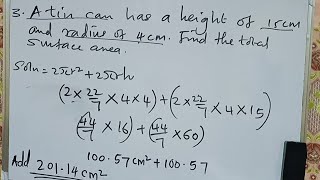 3. A tin can has a height of 15cm
and radius of 4cm. Find the total
surface area.
Soln = 2πr² + 2πrh
(2 × 22/7 × 4 × 4) + (2 × 22/7 × 4 × 15)
(44/7 × 16) + (44/7 × 60)
100.57cm² + 100.57
Add 201.14cm²